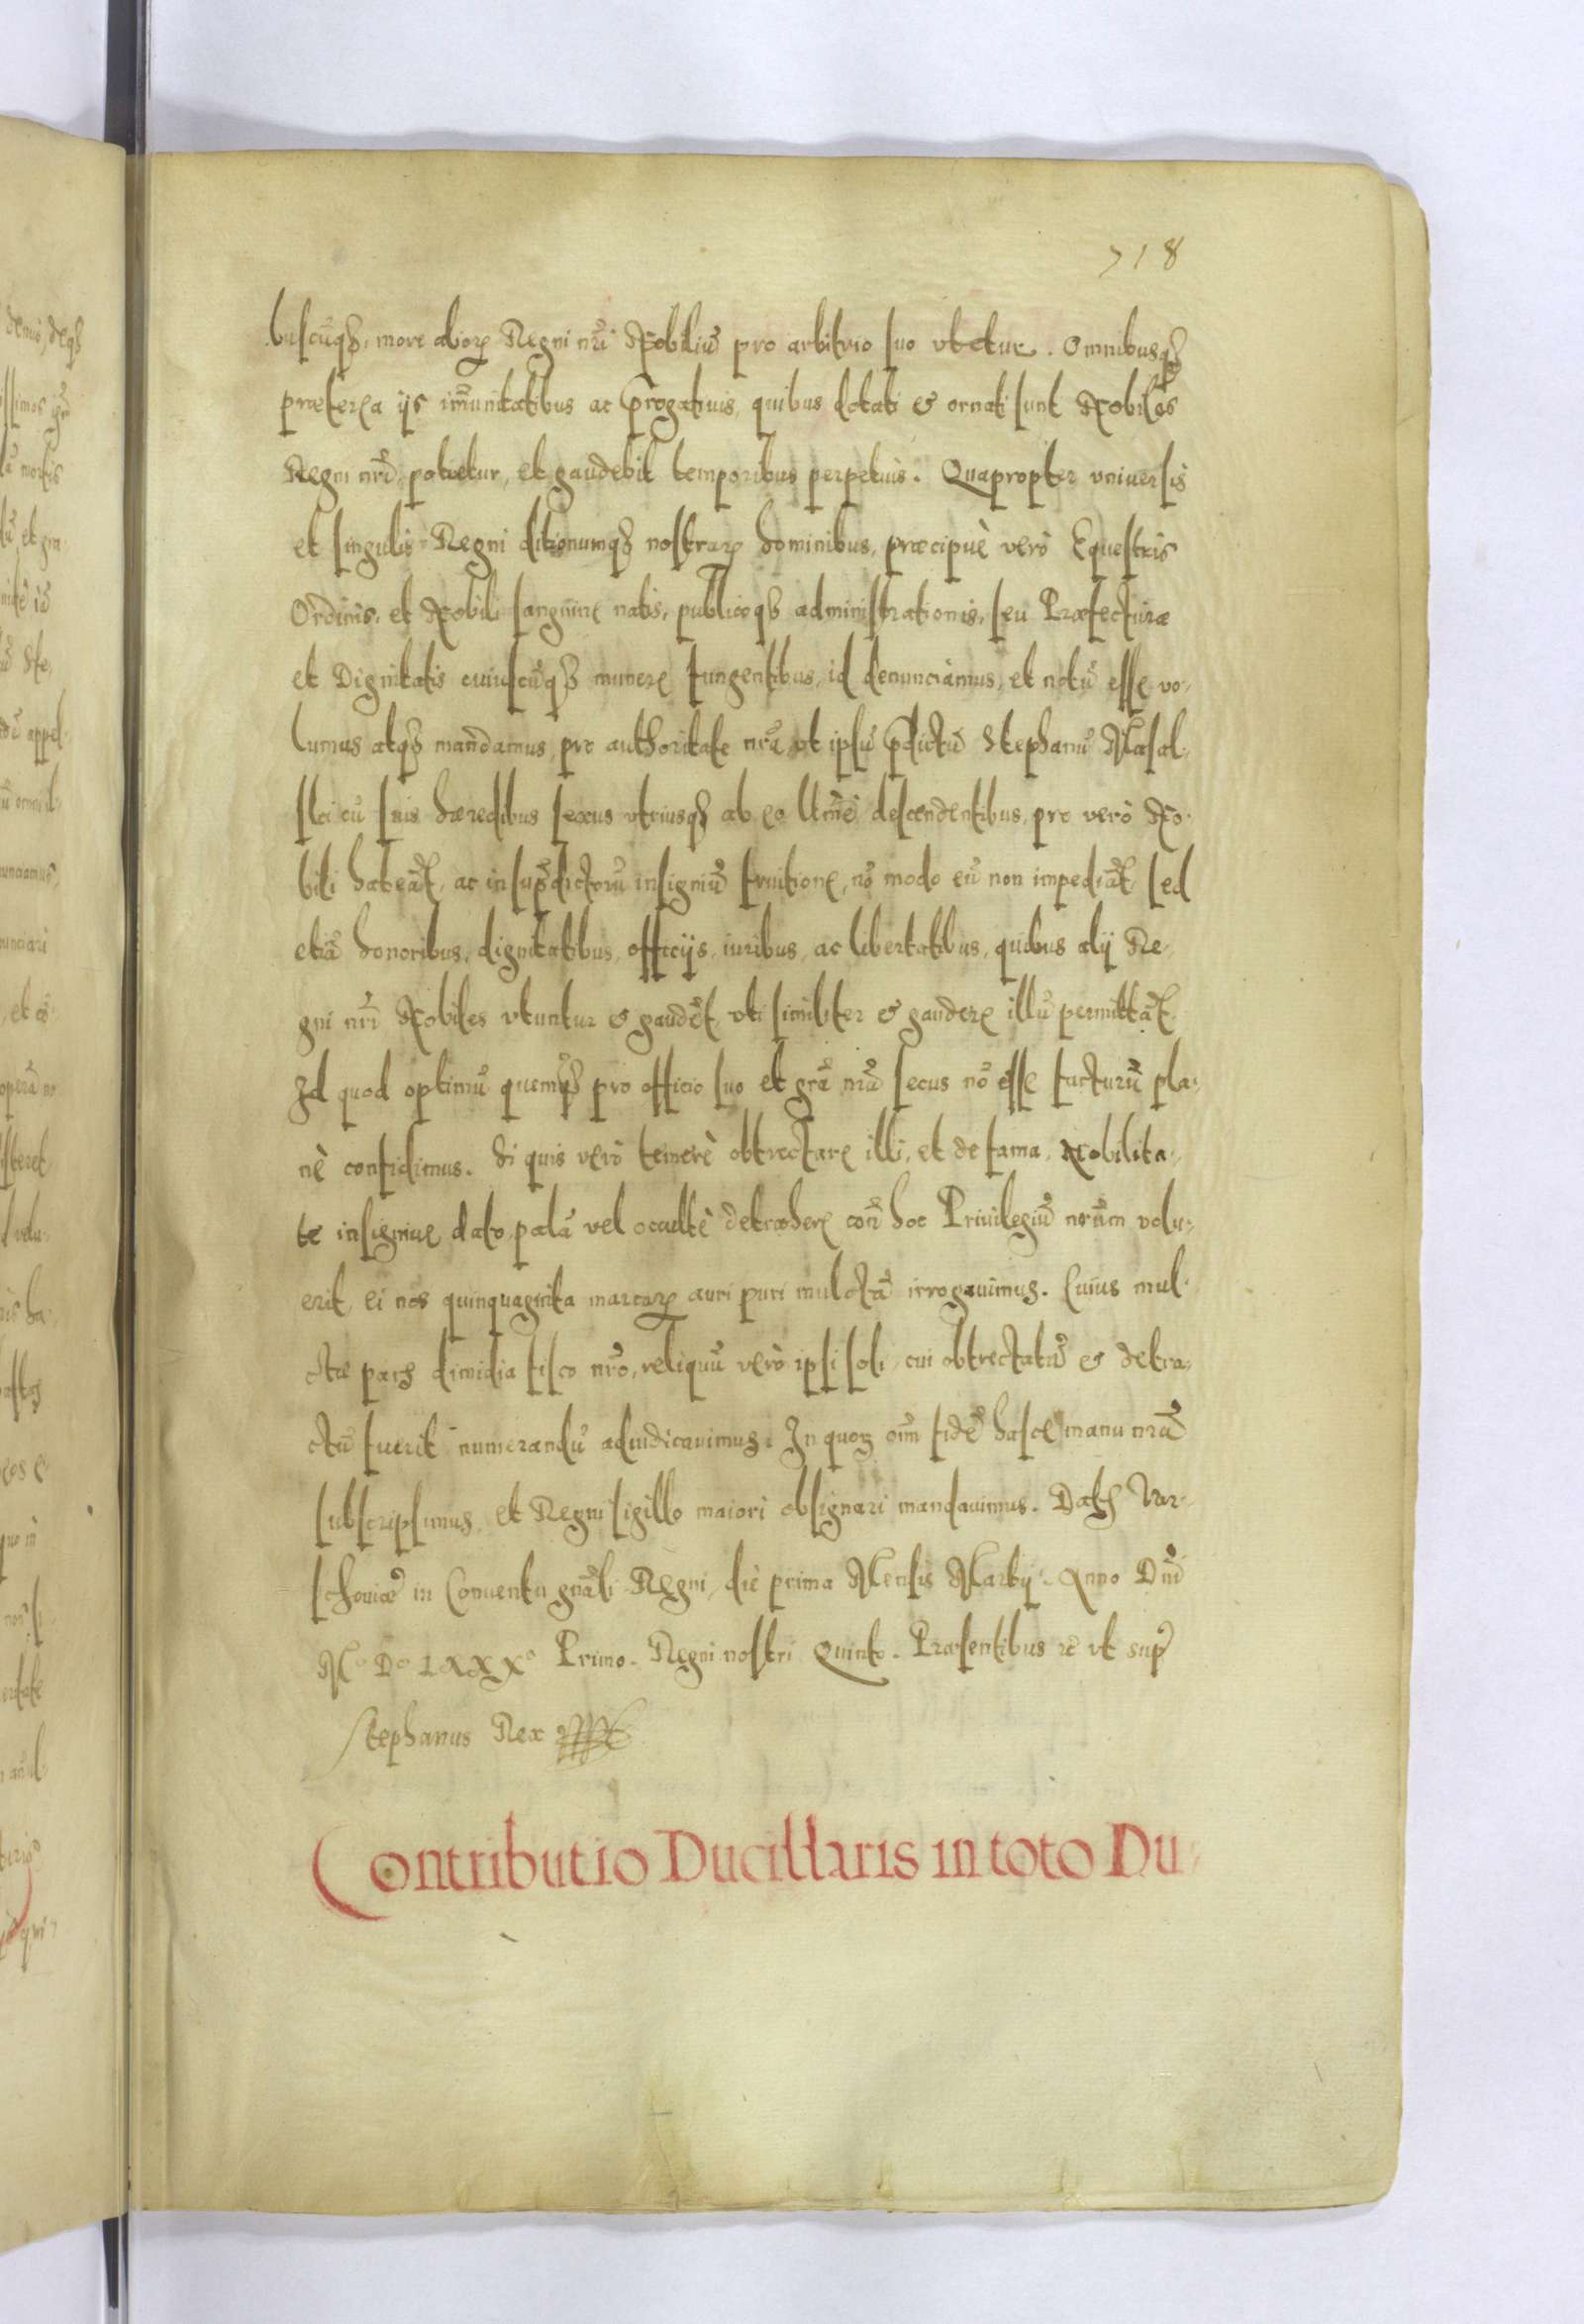 718
buscūq3, more alioꝝ Regni nr̄i Nobiliū pro arbitrio suo vtetur. Omnibusq3
prætereа ijs im̄unitatibus ac p̄rogatiuis, quibus dotati & ornati sunt Nobiles
Regni nr̄i, potietur, et gaudebit temporibus perpetuis. Quapropter vniuersis
et singulis Regni ditionumq3 nostraꝝ hominibus, præcipuè verò Equestris
Ordinis, et Nobili sanguine natis, publicæq3 administrationis, seu Præfecturæ
et Dignitatis cuiuscūq3 munere fungentibus, id denunciamus, et notū esse vo-
lumus atq3 mandamus, pro authoritate nr̄a, vt ipsū p̄dictū Stephanū Masal-
ski cū suis hæredibus sexus vtriusq3 ab eo descendentibus, pro verò No-
bili habeāt, ac in sup̄dictorū insigniū fruitione, nō modo eū non impediāt, sed
etiā honoribus, dignitatibus, officijs, iuribus, ac libertatibus, quibus alij Re-
gni nr̄i Nobiles vtuntur & gaudēt, vti similiter & gaudere illū permittāt.
Id quod optimū quemq3 pro officio suo et gr̄a nr̄a secus nō esse facturū pla-
nè confidimus. Si quis verò temerè obtrectare illi, et de fama, Nobilita-
te insigniue dato, palā vel occultè detrahere con̄ hoc Priuilegiū nr̄um volu-
erit, ei nos quinquaginta marcaꝝ auri puri mulctā irrogauimus. Cuius mul-
ctæ pars dimidia fisco nr̄o, reliquū verò ipsi soli, cui obtrectatū & detra-
ctū fuerit numerandū adiudicauimus. In quoꝝ om̄ fidē hasce manu nr̄a
subscripsimus, et Regni sigillo maiori obsignari mandauimus. Dat3 Var-
schouiæ in Conuentu gnāli Regni, die prima Mensis Martij. Anno Dn̄i
M° D° LXXX° Primo. Regni nostri Quinto. Præsentibus &c vt sup̄
Stephanus Rex
Contributio Ducillaris in toto Du-